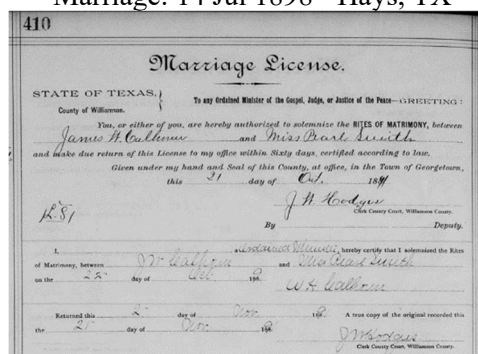 Marriage: 14 Jul 1898 - Hays, TX
410
Marriage License.
STATE OF TEXAS,
County of Williamson.
To any Ordained Minister of the Gospel, Judge, or Justice of the Peace—GREETING:
You, or either of you, are hereby authorized to solemnize the RITES OF MATRIMONY, between
James W. Calhoun and Miss Pearl Smith
and make due return of this License to my office within Sixty days, certified according to law.
Given under my hand and Seal of this County, at office, in the Town of Georgetown,
this 21 day of Oct. 189
J W Hodges
Clerk County Court, Williamson County.
By Deputy.
I, Ordained Minister, hereby certify that I solemnized the Rites
of Matrimony, between J W Calhoun and Miss Pearl Smith
on the 22 day of Oct 189
W H Calhoun
Returned this 2 day of Nov 189 A true copy of the original recorded this
the 2 day of Nov 189
J W Hodges
Clerk County Court, Williamson County.